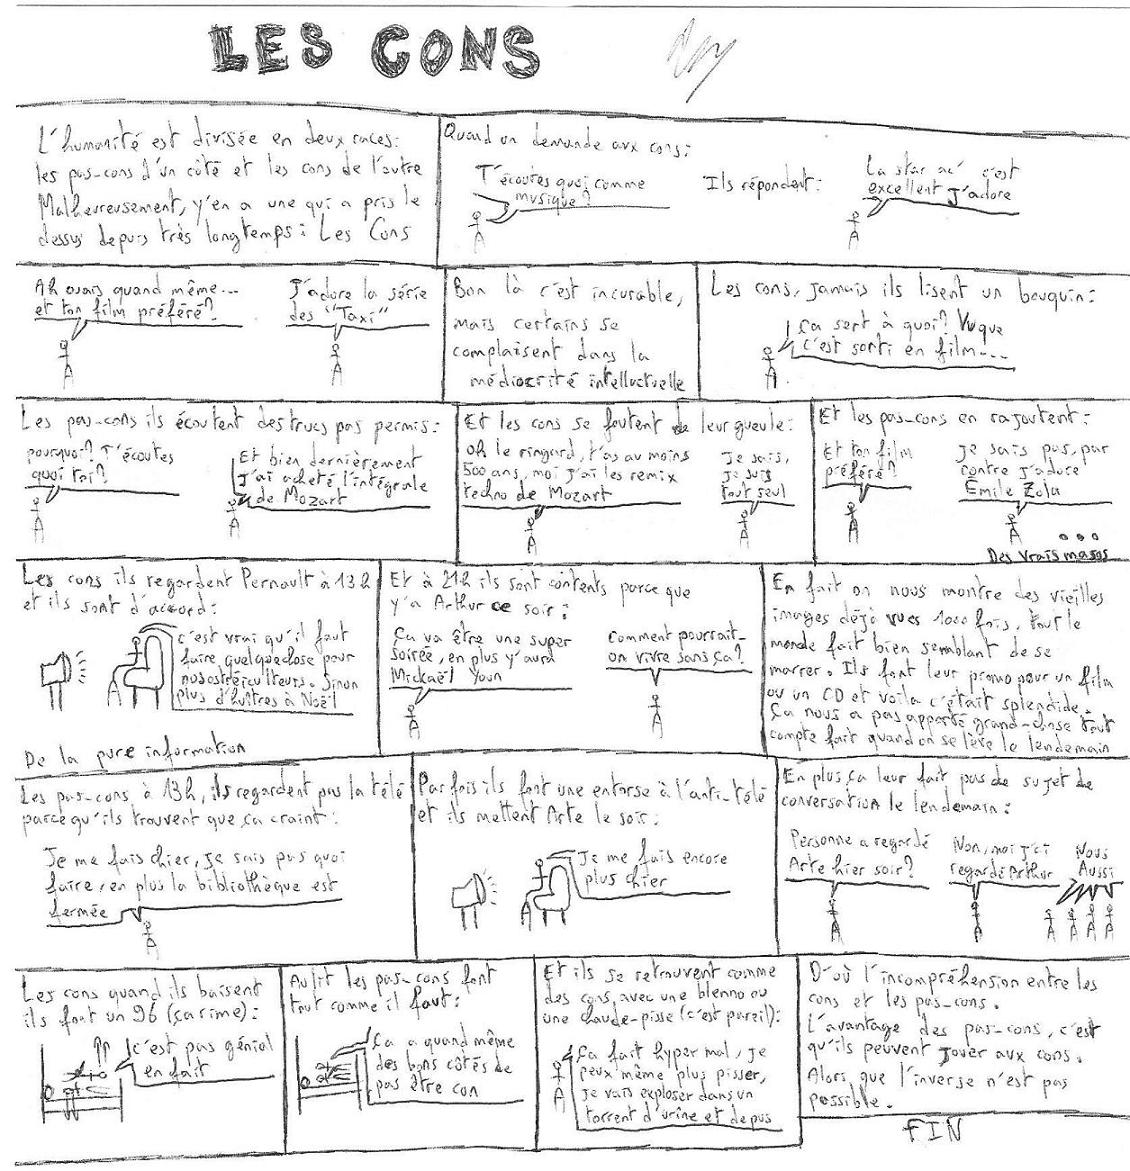 LES CONS
L'humanité est divisée en deux races:
les pas-cons d'un côté et les cons de l'autre
Malheureusement, y'en a une qui a pris le
dessus depuis très longtemps: Les Cons
Quand on demande aux cons:
T'écoutes quoi comme
musique?
Ils répondent:
La star ac' c'est
excellent J'adore
Ah ouais quand même...
et ton film préféré?
J'adore la série
des "Taxi"
Bon là c'est incurable,
mais certains se
complaisent dans la
médiocrité intellectuelle
Les cons, jamais ils lisent un bouquin:
Ca sert à quoi? Vu que
c'est sorti en film...
Les pas-cons ils écoutent des trucs pas permis:
pourquoi? T'écoutes
quoi toi?
Et bien dernièrement
j'ai acheté l'intégrale
de Mozart
Et les cons se foutent de leur gueule:
Oh le ringard, t'as au moins
500 ans, moi j'ai les remix
techno de Mozart
Je sais,
je suis
tout seul
Et les pas-cons en rajoutent:
Et ton film
préféré?
Je sais pas, par
contre J'adore
Emile Zola
...
Des vrais masos
Les cons ils regardent Pernault à 13h
et ils sont d'accord:
c'est vrai qu'il faut
faire quelquechose pour
nos ostréiculteurs. Sinon
plus d'huîtres à Noël
De la pure information
Et à 21h ils sont contents parce que
y'a Arthur ce soir:
Ca va être une super
soirée, en plus y'aura
Mickaël Youn
Comment pourrait-
on vivre sans ça?
En fait on nous montre des vieilles
images déjà vues 1000 fois, tout le
monde fait bien semblant de se
marrer. Ils font leur promo pour un film
ou un CD et voila c'était splendide.
Ca nous a pas apporté grand-chose tout
compte fait quand on se lève le lendemain
Les pas-cons à 13h, ils regardent pas la télé
parce qu'ils trouvent que ça craint:
Je me fais chier, je sais pas quoi
faire, en plus la bibliothèque est
fermée
Parfois ils font une entorse à l'anti-télé
et ils mettent Arte le soir:
Je me fais encore
plus chier
En plus ça leur fait pas de sujet de
conversation le lendemain:
Personne a regardé
Arte hier soir?
Non, moi j'ai
regardé Arthur
Nous
Aussi
Les cons quand ils baisent
ils font un 96 (ça rime):
c'est pas génial
en fait
Au lit les pas-cons font
tout comme il faut:
Ca a quand même
des bons côtés de
pas être con
Et ils se retrouvent comme
des cons, avec une blenno ou
une chaude-pisse (c'est pareil):
Ca fait hyper mal, je
peux même plus pisser,
je vais exploser dans un
torrent d'urine et de pus
D'où l'incompréhension entre les
cons et les pas-cons.
L'avantage des pas-cons, c'est
qu'ils peuvent jouer aux cons.
Alors que l'inverse n'est pas
possible.
FIN